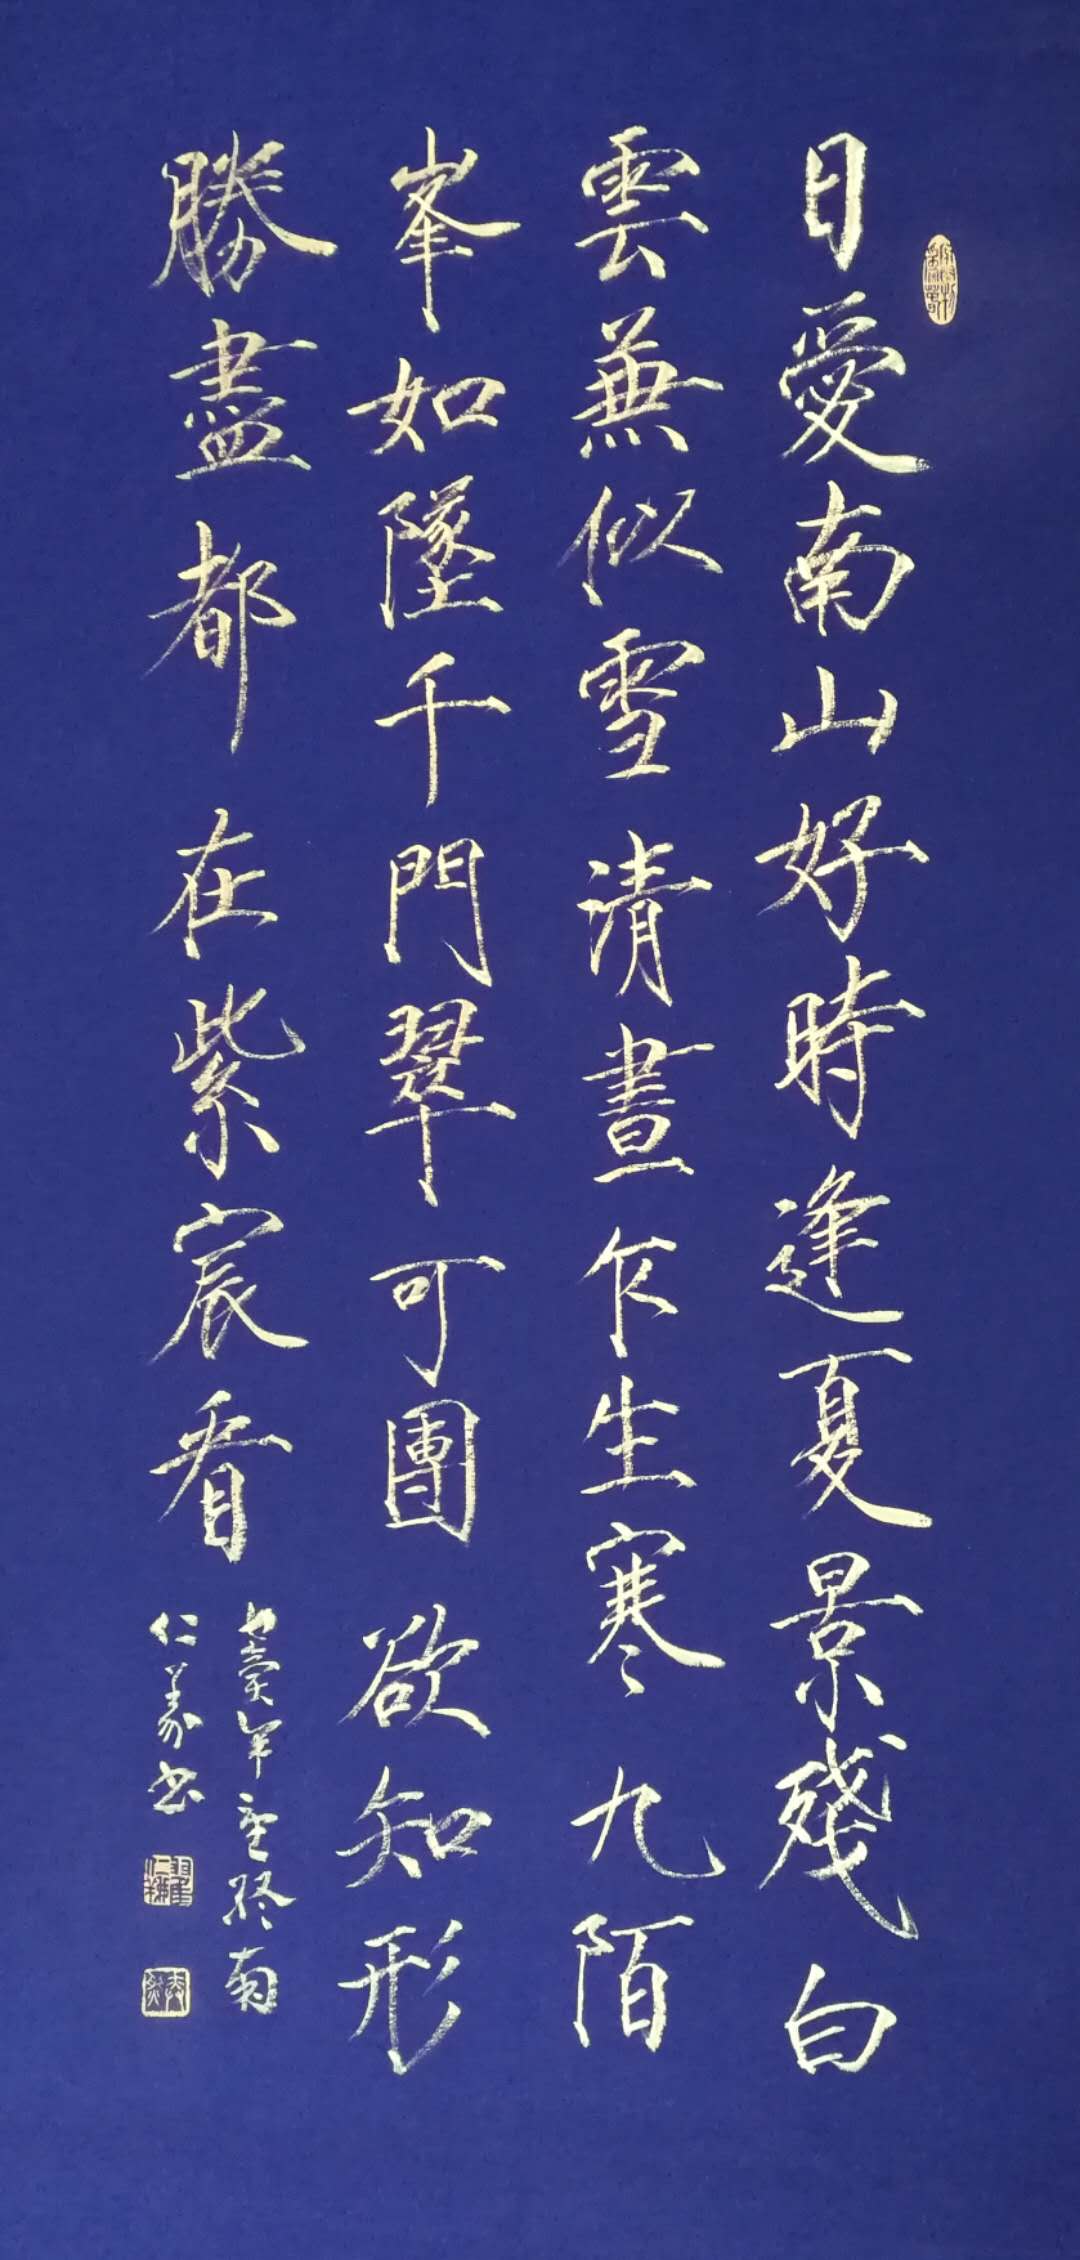 日愛南山好時逢夏景殘白
雲無似雪清晝乍生寒九陌
峯如墜千門翠可團欲知形
勝盡都在紫宸看
年望終南
仁義書